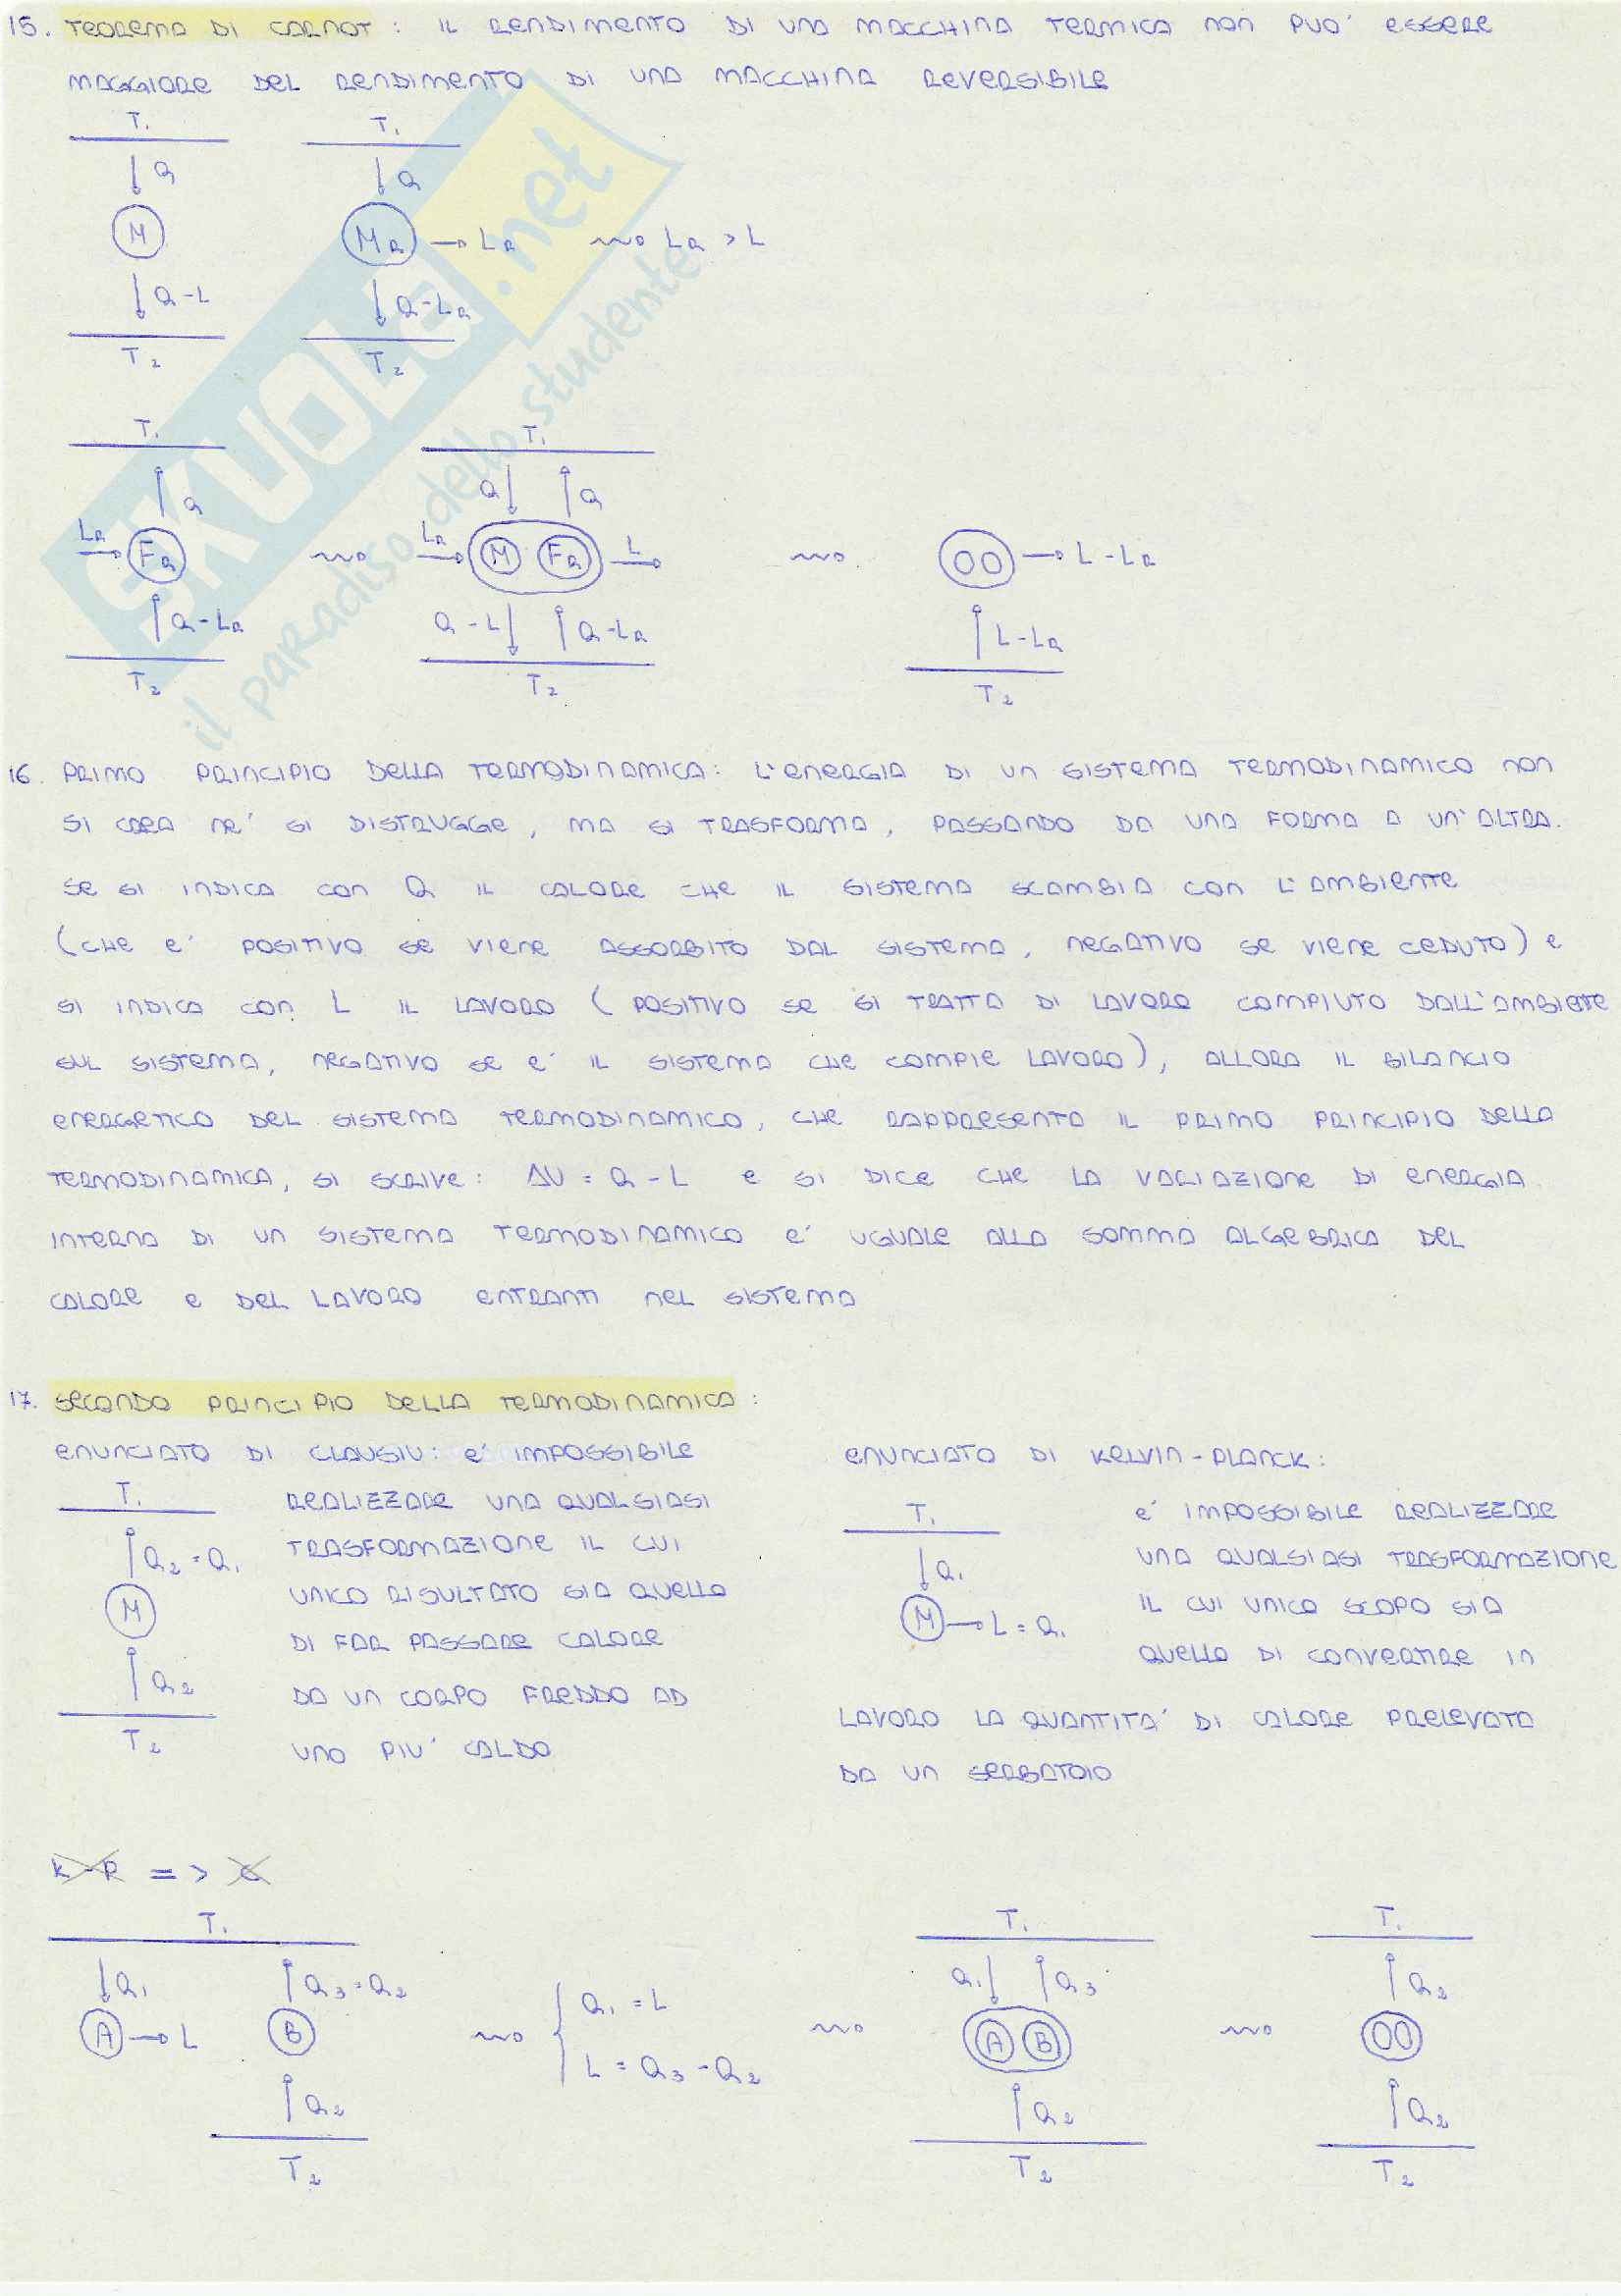 15. TEOREMA DI CARNOT : IL RENDIMENTO DI UNA MACCHINA TERMICA NON PUO' ESSERE
MAGGIORE DEL RENDIMENTO DI UNA MACCHINA REVERSIBILE
T₁ T₁
Q Q
M MR LR LR > L
Q-L Q-LR
T₂ T₂
T₁ T₁
Q Q Q
LR FR LR M FR L L-LR
Q-LR Q-L Q-LR L-LR
T₂ T₂ T₂
SKUOLA.net
il paradiso dello studente
16. PRIMO PRINCIPIO DELLA TERMODINAMICA: L'ENERGIA DI UN SISTEMA TERMODINAMICO NON
SI CREA NE' SI DISTRUGGE, MA SI TRASFORMA, PASSANDO DA UNA FORMA A UN'ALTRA.
SE SI INDICA CON Q IL CALORE CHE IL SISTEMA SCAMBIA CON L'AMBIENTE
(CHE E' POSITIVO SE VIENE ASSORBITO DAL SISTEMA, NEGATIVO SE VIENE CEDUTO) E
SI INDICA CON L IL LAVORO (POSITIVO SE SI TRATTA DI LAVORO COMPIUTO DALL'AMBIENTE
SUL SISTEMA, NEGATIVO SE E' IL SISTEMA CHE COMPIE LAVORO), ALLORA IL BILANCIO
ENERGETICO DEL SISTEMA TERMODINAMICO, CHE RAPPRESENTA IL PRIMO PRINCIPIO DELLA
TERMODINAMICA, SI SCRIVE: ΔU = Q - L E SI DICE CHE LA VARIAZIONE DI ENERGIA
INTERNA DI UN SISTEMA TERMODINAMICO E' UGUALE ALLA SOMMA ALGEBRICA DEL
CALORE E DEL LAVORO ENTRANTI NEL SISTEMA
17. SECONDO PRINCIPIO DELLA TERMODINAMICA :
ENUNCIATO DI CLAUSIU: E' IMPOSSIBILE
REALIZZARE UNA QUALSIASI
TRASFORMAZIONE IL CUI
UNICO RISULTATO SIA QUELLO
DI FAR PASSARE CALORE
DA UN CORPO FREDDO AD
UNO PIU' CALDO
T₁
Q₂ = Q₁
M
Q₂
T₂
ENUNCIATO DI KELVIN-PLANCK:
E' IMPOSSIBILE REALIZZARE
UNA QUALSIASI TRASFORMAZIONE
IL CUI UNICO SCOPO SIA
QUELLO DI CONVERTIRE IN
LAVORO LA QUANTITA' DI CALORE PRELEVATA
DA UN SERBATOIO
T₁
Q₁
M L = Q₁
K-P => C
T₁ T₁ T₁
Q₁ Q₃=Q₂ Q₁ = L Q₁ Q₃ Q₂
A L B L = Q₃ - Q₂ A B
Q₂ Q₂ Q₂
T₂ T₂ T₂